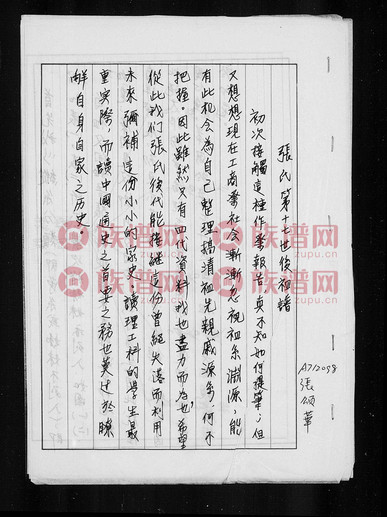 張氏第十七世後裔譜
A712098
張頌華
初次接觸這種作業報告,真不知如何提筆;但
又想想現在工商業社会漸漸忽視祖系淵源;能
有此机会為自己整理搞清祖先親戚源系,何不
把握。因此雖然只有四代資料我也盡力而為也,希望
從此我们張氏後代能接繼這份曾經失落而利用
未來彌補這份小小的家史。讀理工科的學生最
重實際,而讀中國通史之首要之務也莫過於瞭
解自身自家之历史。
族谱网
zupu.cn
族谱网
zupu.cn
族谱网
zupu.cn
族谱网
zupu.cn